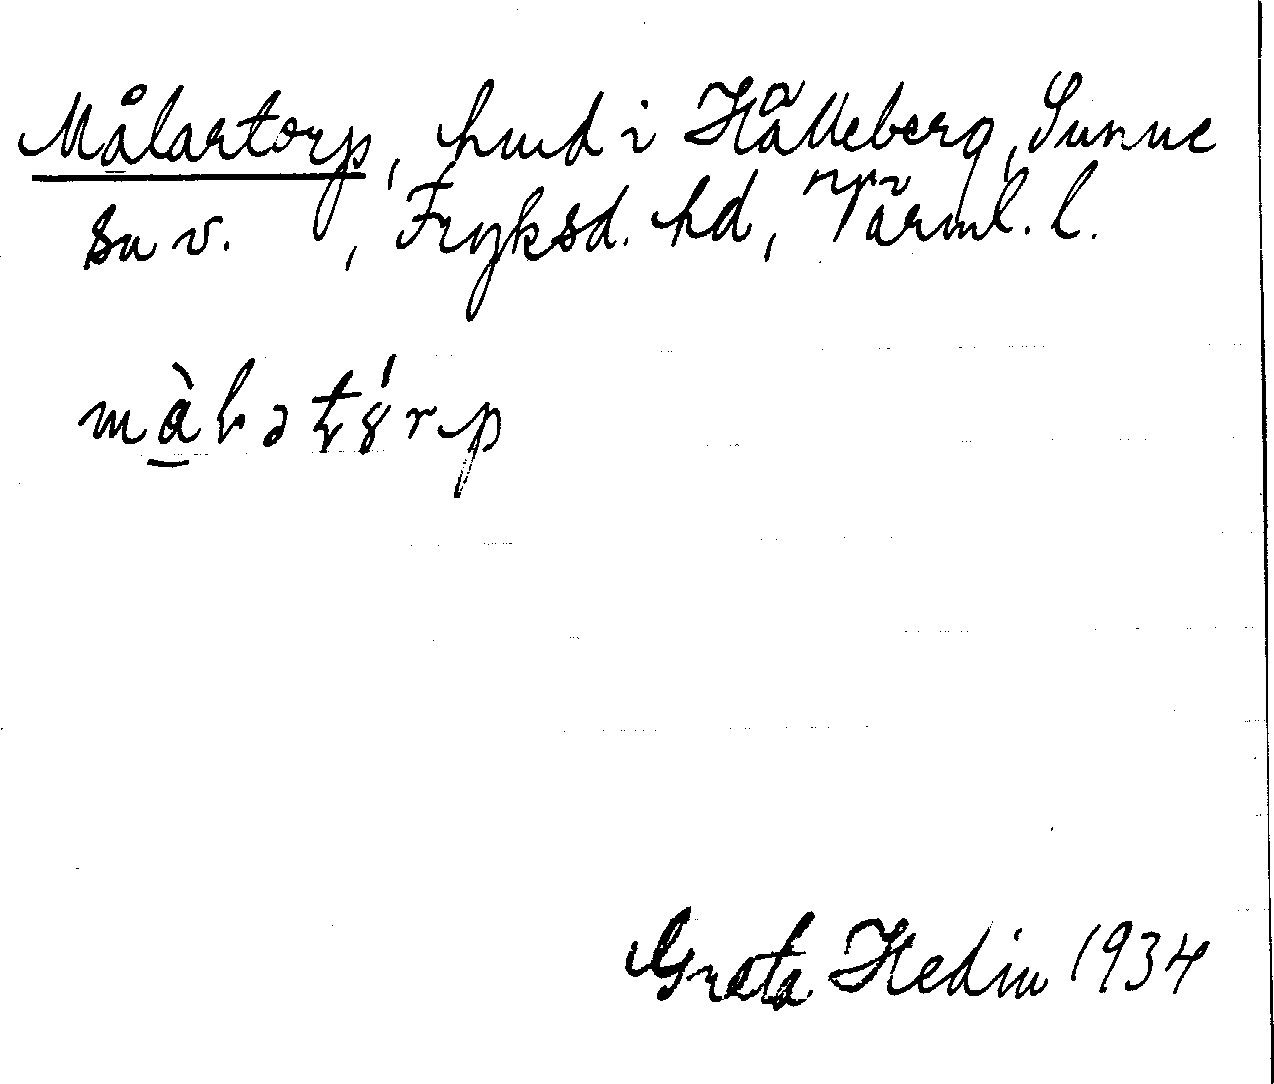 Målartorp, hmd i Hålleberg, Sunne
sn v. , Fryksd. hd, Värml. l.
màlətórp
Greta Hedin 1934